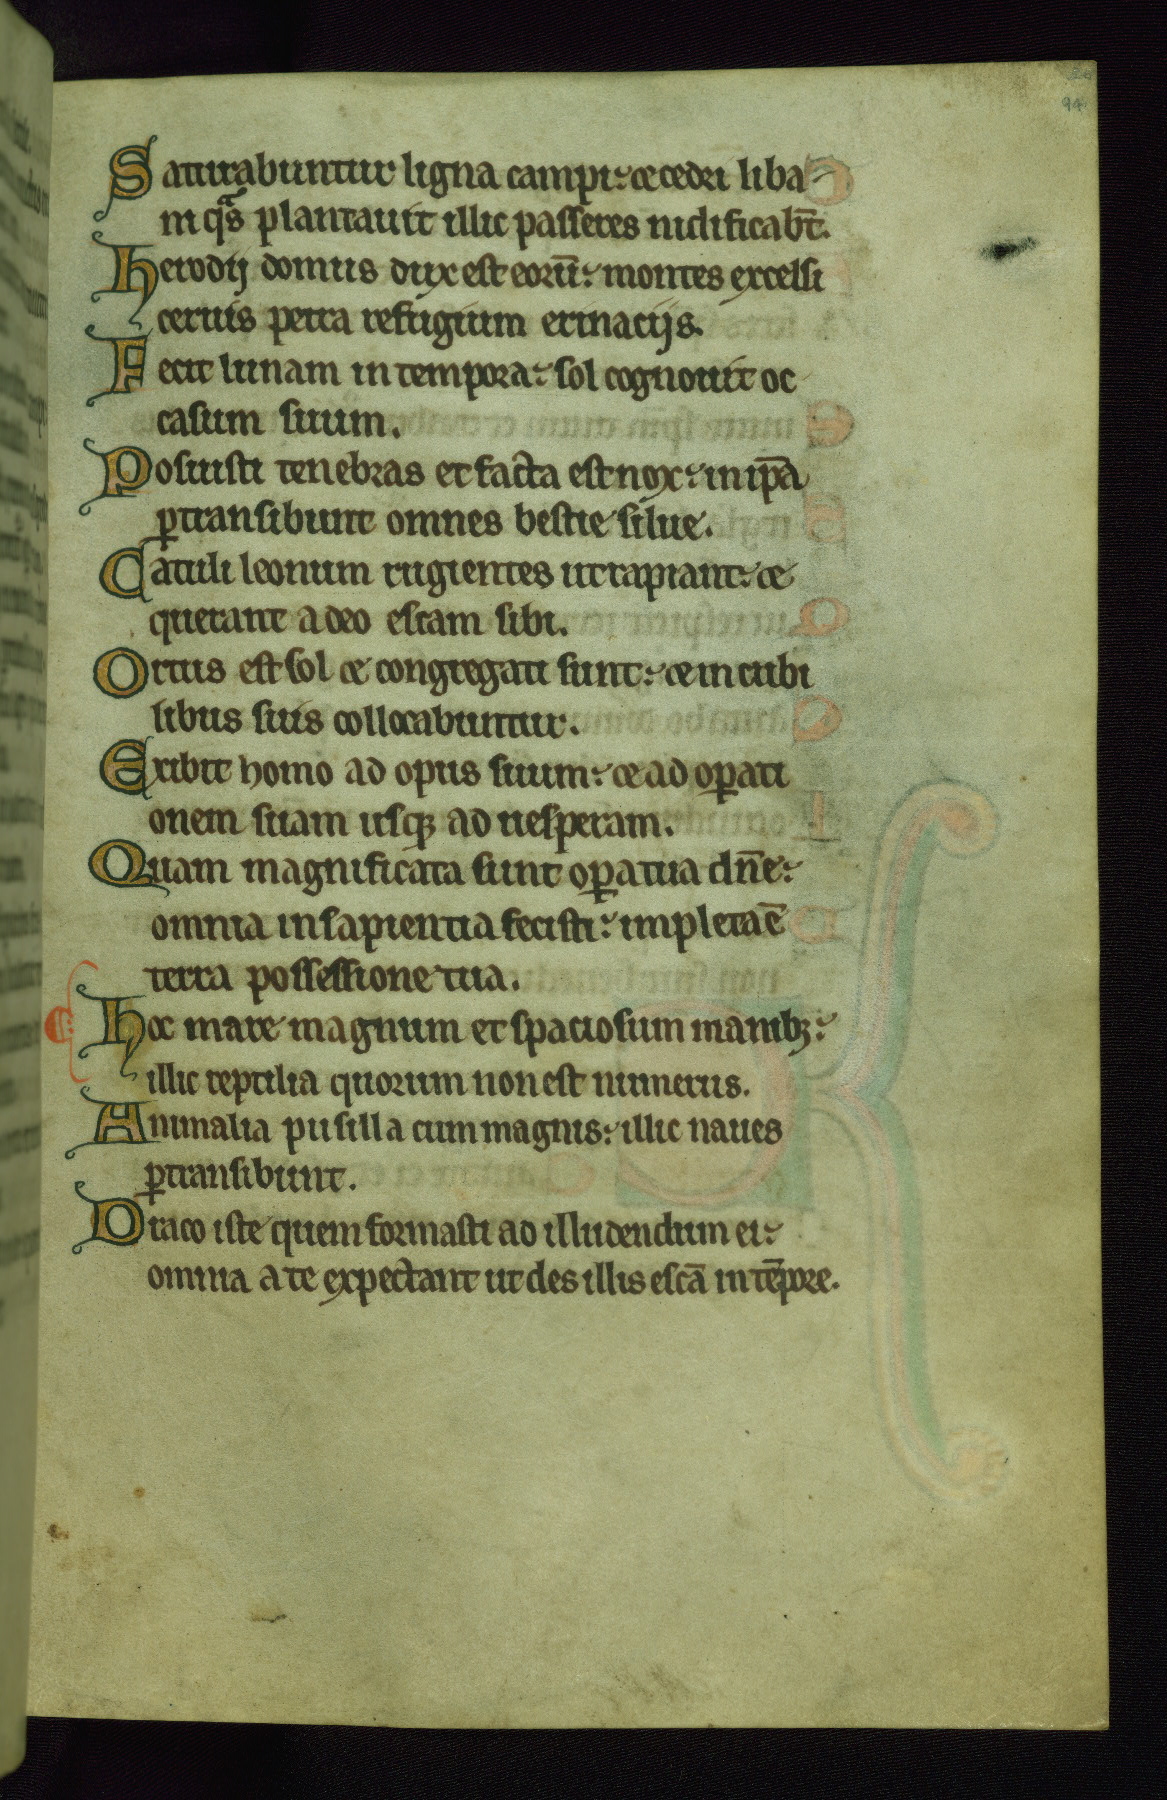 94
Saturabuntur ligna campi: et cedri liba-
ni q̾s plantauit illic passeres nidificabt̄.
Herodij domus dux est eorū: montes excelsi
ceruis petra refugium erinacijs.
Fecit lunam in tempora: sol cognouit oc
casum suum.
Posuisti tenebras et facta est nox: in ip̄a
ꝑtransibunt omnes bestie silue.
Catuli leonum rugientes ut rapiant: et
querant a deo escam sibi.
Ortus est sol et congregati sunt: et in cubi
libus suis collocabuntur.
Exibit homo ad opus suum: et ad oꝑati
onem suam usqꝫ ad uesperam.
Quam magnificata sunt oꝑa tua dn̄e:
omnia in sapientia fecisti: impleta ē
terra possessione tua.
Hoc mare magnum et spaciosum manibꝫ:
illic reptilia quorum non est numerus.
Animalia pusilla cum magnis: illic naues
ꝑtransibunt.
Draco iste quem formasti ad illudendum ei:
omnia a te expectant ut des illis escā in tēpore.